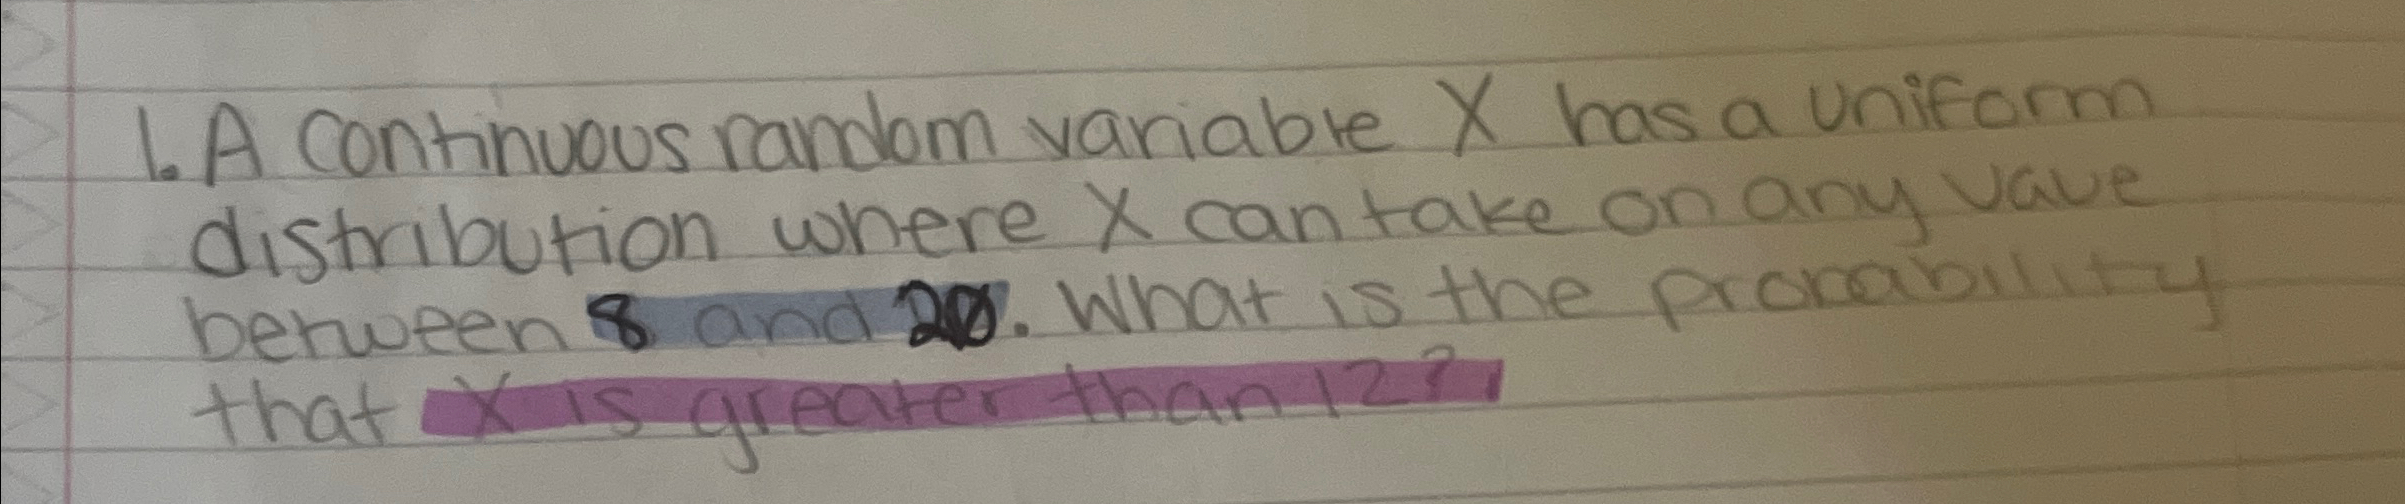 1. A continuous random variable X has a uniform
distribution where X can take on any vaue
between 8 and 20. What is the probability
that X is greater than 12?